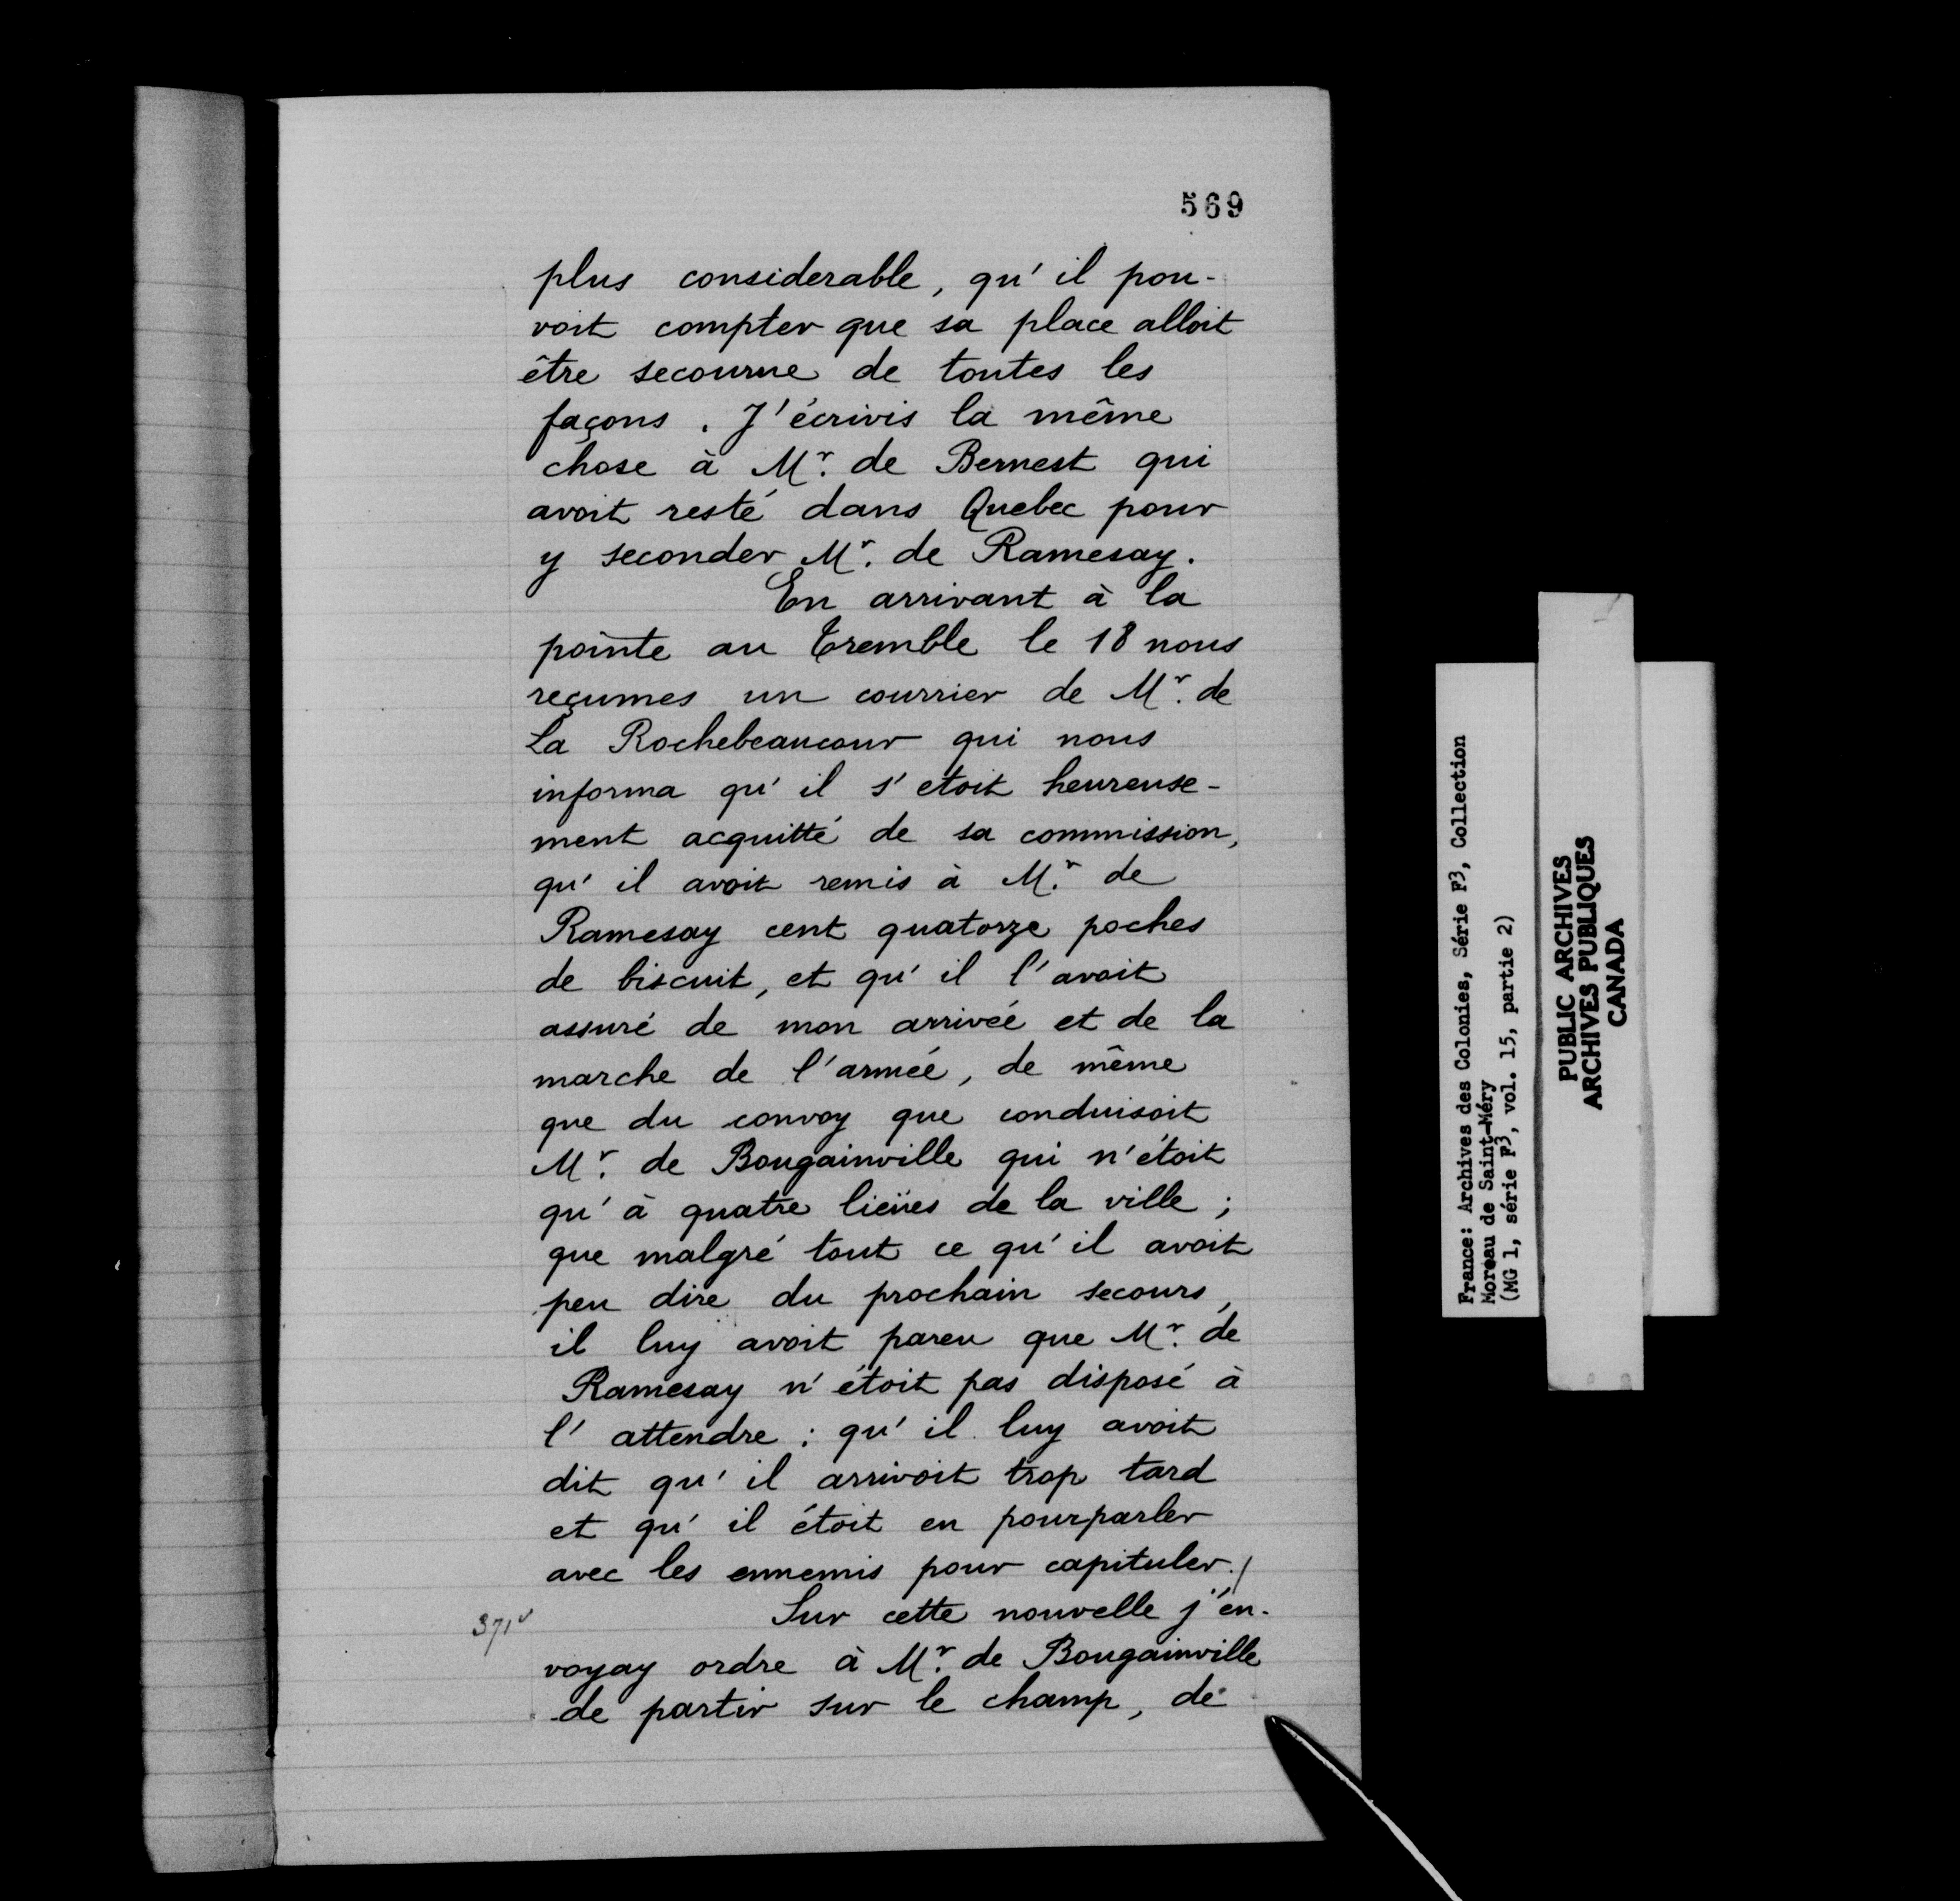 569
plus considerable, qu'il pou-
voit compter que sa place alloit
être secourue de toutes les
façons. J'écrivis la même
chose à Mr. de Bernest qui
avoit resté dans Quebec pour
y seconder Mr. de Ramesay.
En arrivant à la
pointe au Tremble le 18 nous
reçumes un courrier de Mr. de
La Rochebeaucour qui nous
informa qu'il s'etoit heureuse-
ment acquitté de sa commission,
qu'il avoit remis à Mr. de
Ramesay cent quatorze poches
de biscuit, et qu'il l'avoit
assuré de mon arrivéé et de la
marche de l'arméé, de même
que du convoy que conduisoit
Mr. de Bougainville qui n'étoit
qu'à quatre lieües de la ville;
que malgré tout ce qu'il avoit
peu dire du prochain secours,
il luy avoit pareu que Mr. de
Ramesay n'étoit pas disposé à
l'attendre: qu'il luy avoit
dit qu'il arrivoit trop tard
et qu'il étoit en pourparler
avec les ennemis pour capituler./
371v
Sur cette nouvelle j'en-
voyay ordre à Mr. de Bougainville
de partir sur le champ, de
France: Archives des Colonies, Série F3, Collection
Moreau de Saint-Méry
(MG 1, série F3, vol. 15, partie 2)
PUBLIC ARCHIVES
ARCHIVES PUBLIQUES
CANADA